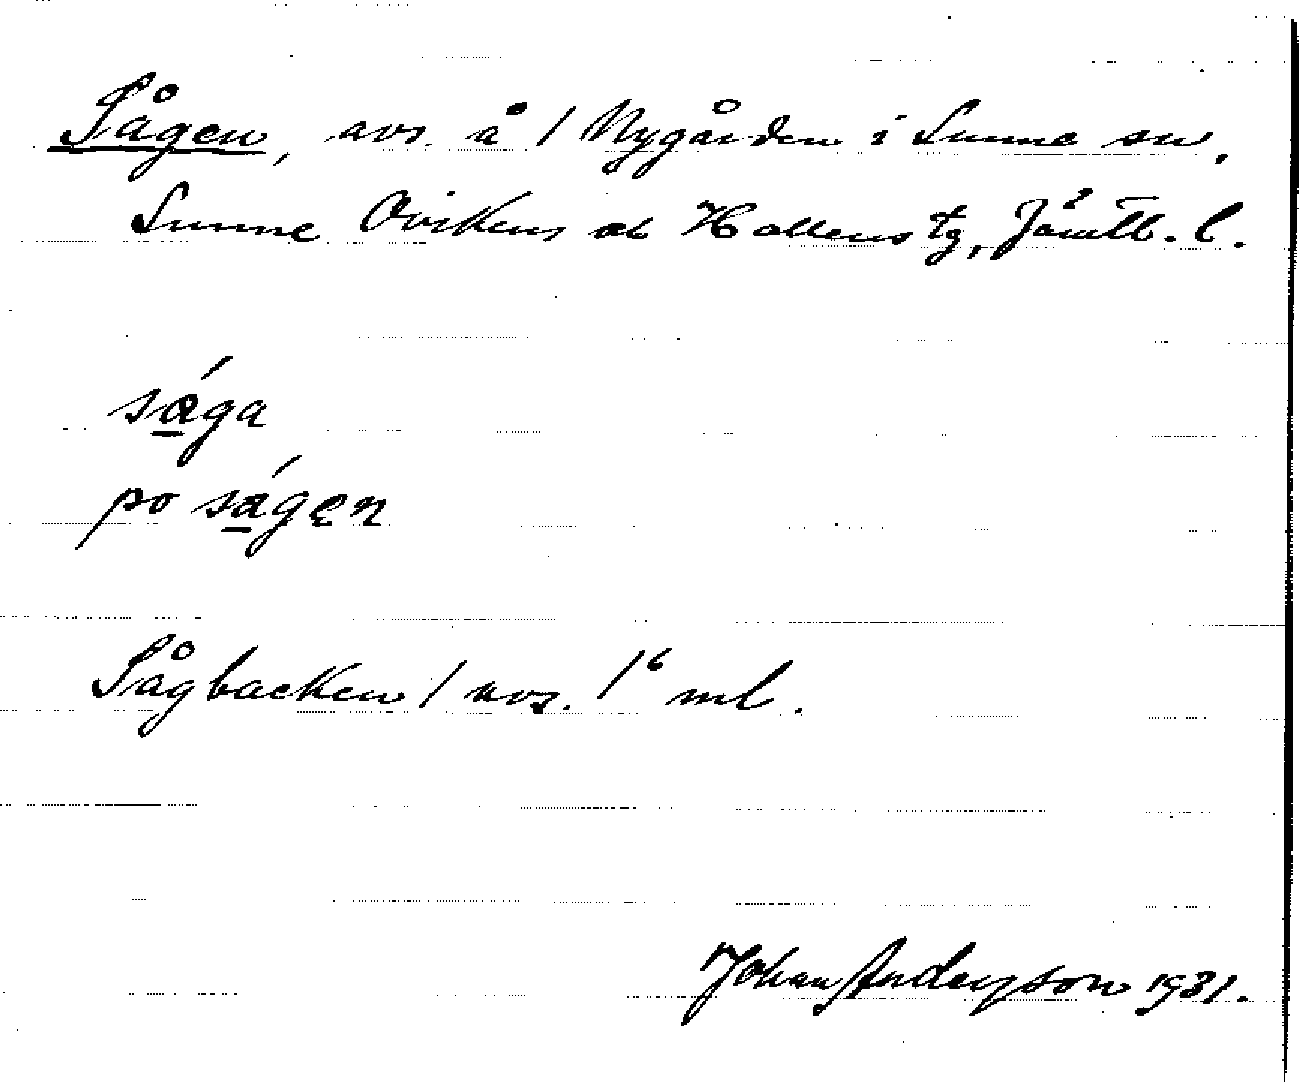 Sågen, avs. å / Nygården i Sunne sn,
Sunne Ovikens o Hallens tg, Jämtl. l.
sága
po ságen
Sågbacken / avs. 1⁶ ml.
Johan Anderson 1931.